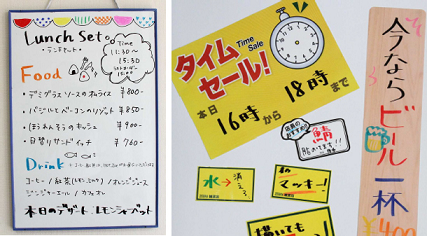 Lunch Set。
～ランチセット～
Time
11:30～
15:30
15:00
Food
・デミグラスソースのオムライス ¥800-
・バジルとベーコンのリゾット ¥850-
・ほうれんそうのキッシュ ¥900-
・日替りサンドイッチ ¥760-
Drink
コーヒー/紅茶(レモン,ミルク)/オレンジジュース
ジンジャーエール/カフェオレ
本日のデザート:レモンシャーベット
タイム
Time
Sale
セール!
本日
16時から
18時まで
店長の
おすすめ
鯖
脂のってます!!
水→消える
マッキー!
描いても
今ならビール一杯
¥400